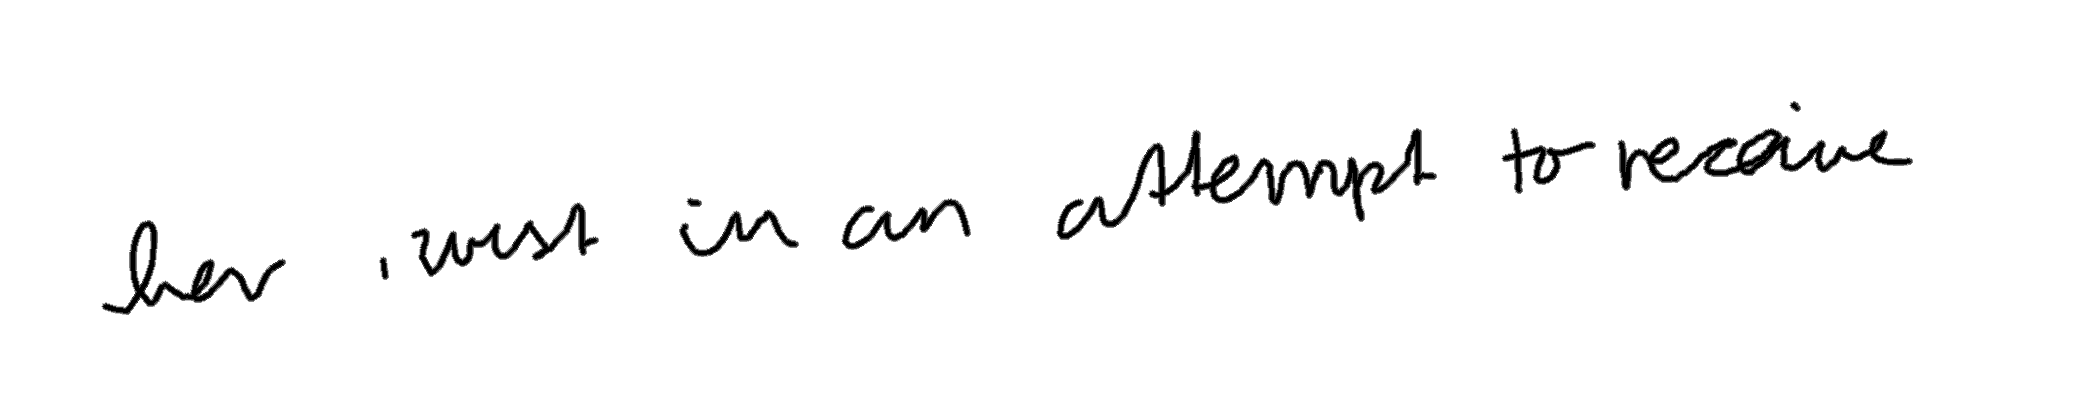 her , west in an attempt to receive